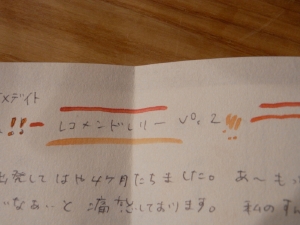 メデイト
!! レコメンドレリー vo. 2 !!!
出発してはや4ケ月たちました。 あ〜もっ
じなあいと 痛感しております。 私のすん